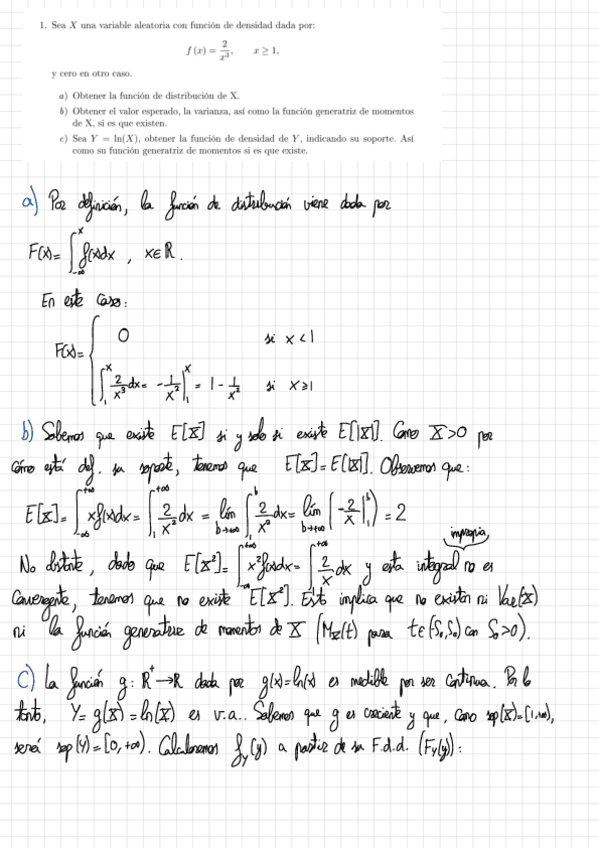 1. Sea X una variable aleatoria con función de densidad dada por:
f (x) = 2/x³, x ≥ 1,
y cero en otro caso.
a) Obtener la función de distribución de X.
b) Obtener el valor esperado, la varianza, así como la función generatriz de momentos
de X, si es que existen.
c) Sea Y = ln(X), obtener la función de densidad de Y, indicando su soporte. Así
como su función generatriz de momentos si es que existe.
a) Por definición, la función de distribución viene dada por
F(x)= ∫_{-∞}^{x} f(x)dx , x∈ℝ.
En este caso:
F(x)= { 0 si x<1
∫_1^x 2/x³ dx = -1/x² |_1^x = 1 - 1/x² si x≥1
b) Sabemos que existe E[X] si y solo si existe E[|X|]. Como X>0 por
cómo está def. su soporte, tenemos que E[X]=E[|X|]. Observemos que:
E[X]= ∫_{-∞}^{+∞} xf(x)dx = ∫_1^{+∞} 2/x² dx = lím_{b→+∞} ∫_1^b 2/x² dx = lím_{b→+∞} (-2/x |_1^b) = 2
impropia
No obstante, dado que E[X²]= ∫_{-∞}^{+∞} x²f(x)dx= ∫_1^{+∞} 2/x dx y esta integral no es
convergente, tenemos que no existe E[X²]. Esto implica que no existan ni Var(X)
ni la función generatriz de momentos de X (M_X(t) para t∈(-S₀,S₀) con S₀>0).
C) La función g: ℝ⁺→ℝ dada por g(x)=ln(x) es medible por ser continua. Por lo
tanto, Y= g(X)=ln(X) es v.a.. Sabemos que g es creciente y que, como sop(X)=[1,+∞),
será sop(Y)=[0,+∞). Calcularemos f_Y(y) a partir de su F.d.d. (F_Y(y)):